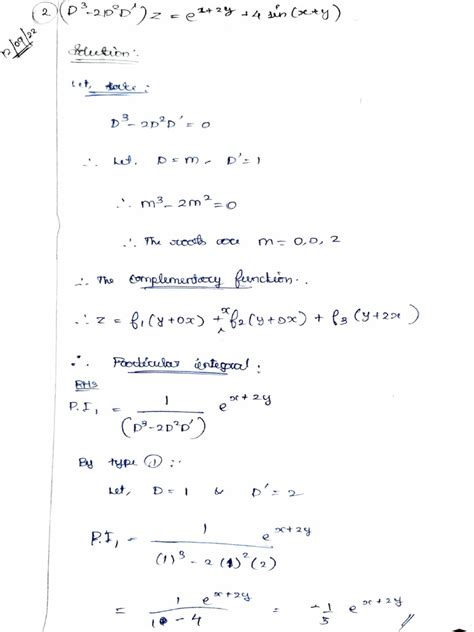 (2) (D³-2D²D')z = e^{x+2y} + 4 sin(x+y)
12/09/22
Solution:
Let, take:
D³-2D²D' = 0
∴ Let. D = m, D' = 1
∴ m³-2m² = 0
∴ The roots are m = 0, 0, 2
∴ The complementary function..
∴ z = f₁(y+0x) + x f₂(y+0x) + f₃(y+2x)
∴ Particular integral:
RHS
P.I₁ = 1/(D³-2D²D') e^{x+2y}
By type ①:-
Let, D = 1 & D' = 2
P.I₁ = 1/((1)³-2(1)²(2)) e^{x+2y}
= 1/(1-4) e^{x+2y} = -1/3 e^{x+2y}